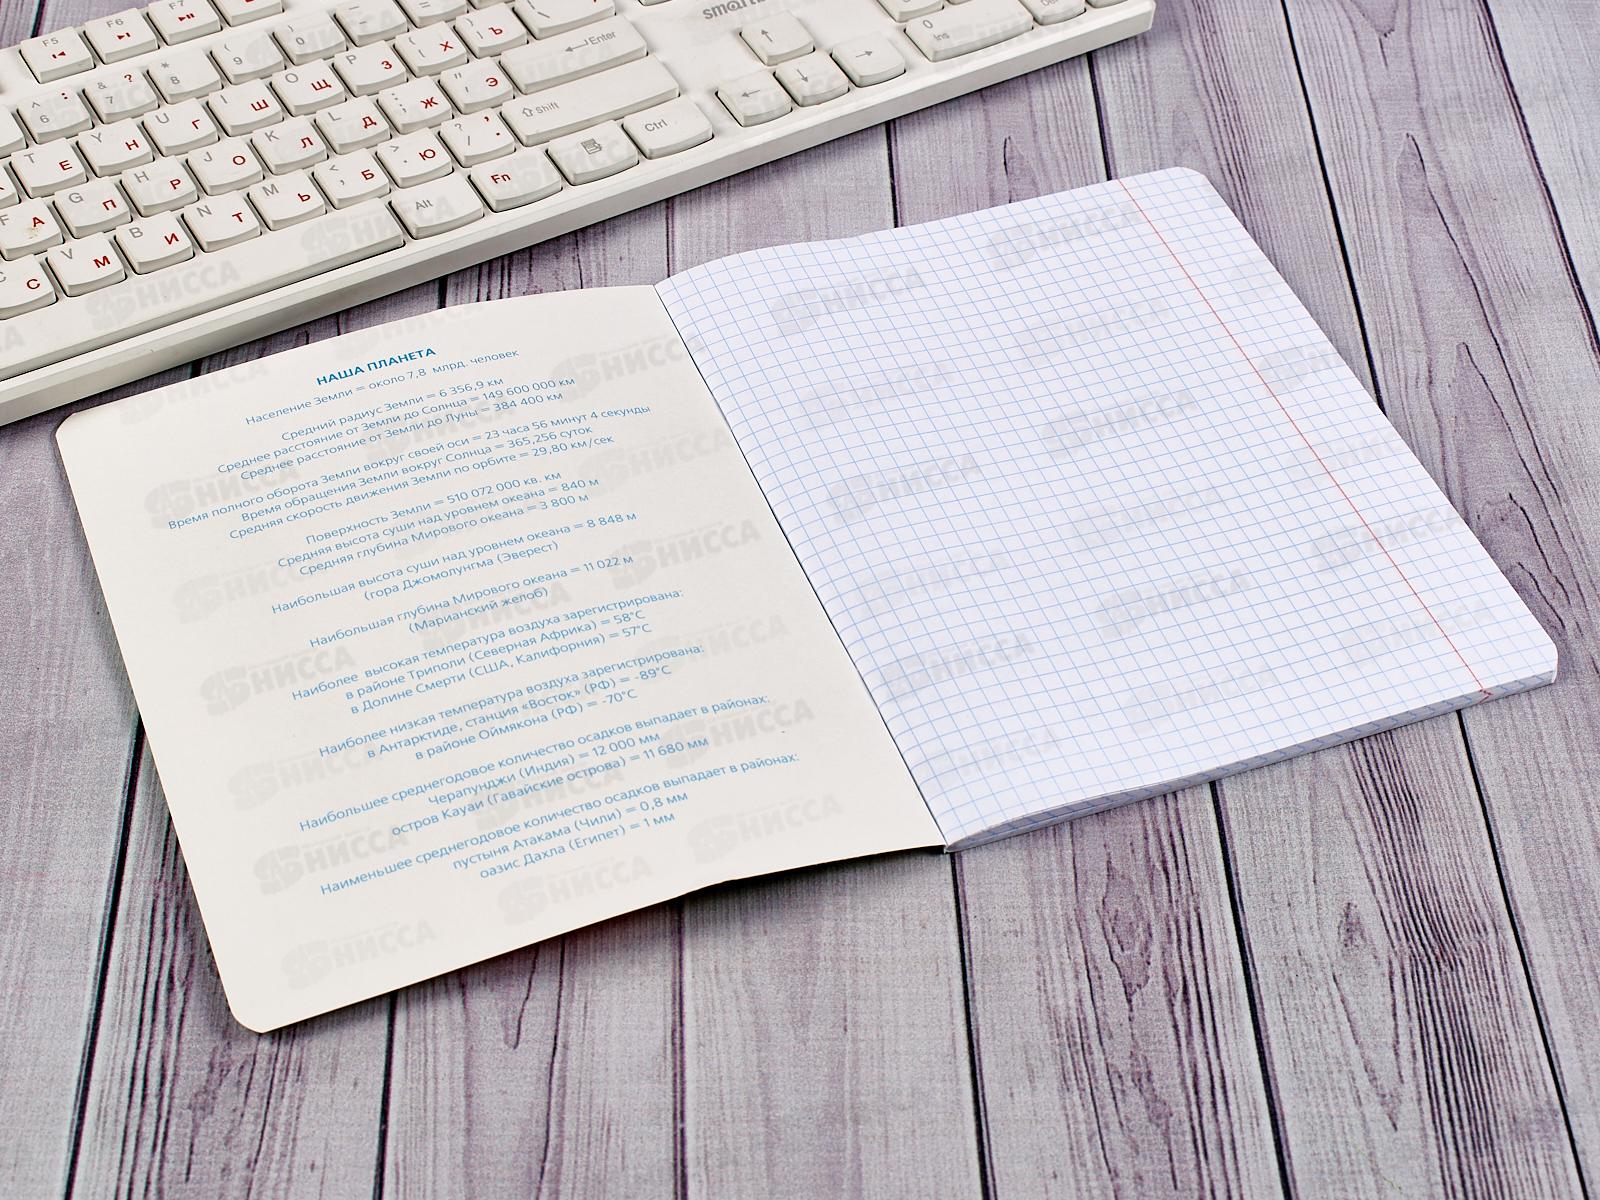 НАША ПЛАНЕТА
Население Земли = около 7,8 млрд. человек
Средний радиус Земли = 6 356,9 км
Среднее расстояние от Земли до Солнца = 149 600 000 км
Среднее расстояние от Земли до Луны = 384 400 км
Время полного оборота Земли вокруг своей оси = 23 часа 56 минут 4 секунды
Время обращения Земли вокруг Солнца = 365,256 суток
Средняя скорость движения Земли по орбите = 29,80 км/сек
Поверхность Земли = 510 072 000 кв. км
Средняя высота суши над уровнем океана = 840 м
Средняя глубина Мирового океана = 3 800 м
Наибольшая высота суши над уровнем океана = 8 848 м
(гора Джомолунгма (Эверест)
Наибольшая глубина Мирового океана = 11 022 м
(Марианский желоб)
Наиболее высокая температура воздуха зарегистрирована:
в районе Триполи (Северная Африка) = 58°С
в Долине Смерти (США, Калифорния) = 57°С
Наиболее низкая температура воздуха зарегистрирована:
в Антарктиде, станция «Восток» (РФ) = -89°С
в районе Оймякона (РФ) = -70°С
Наибольшее среднегодовое количество осадков выпадает в районах:
Черапунджи (Индия) = 12 000 мм
остров Кауаи (Гавайские острова) = 11 680 мм
Наименьшее среднегодовое количество осадков выпадает в районах:
пустыня Атакама (Чили) = 0,8 мм
оазис Дахла (Египет) = 1 мм
F5
F6
F7
Enter
Shift
Ctrl
Fn
Alt
Ins
НИССА